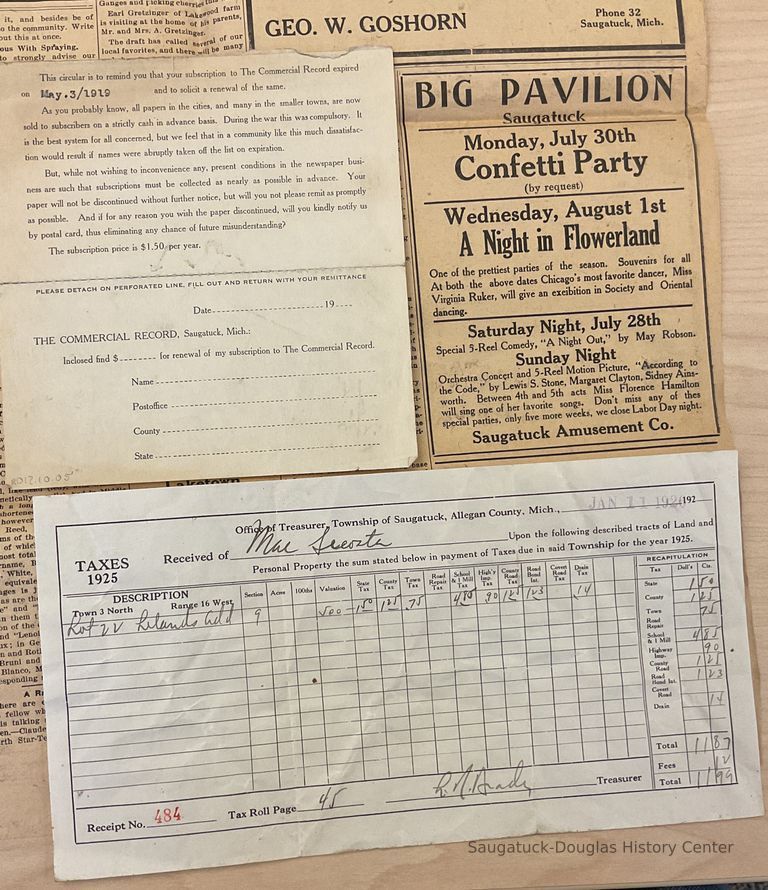 it, and besides be of
to the community. Write
out this at once.
ous With Spraying.
to strongly advise our
Ganges and picking cherries this
Earl Gretzinger of Lakewood farm
is visiting at the home of his parents,
Mr. and Mrs. A. Gretzinger.
The draft has called several of our
local favorites, and there will be many
GEO. W. GOSHORN
Phone 32
Saugatuck, Mich.
This circular is to remind you that your subscription to The Commercial Record expired
on May.3/1919 and to solicit a renewal of the same.
As you probably know, all papers in the cities, and many in the smaller towns, are now
sold to subscribers on a strictly cash in advance basis. During the war this was compulsory. It
is the best system for all concerned, but we feel that in a community like this much dissatisfac-
tion would result if names were abruptly taken off the list on expiration.
But, while not wishing to inconvenience any, present conditions in the newspaper busi-
ness are such that subscriptions must be collected as nearly as possible in advance. Your
paper will not be discontinued without further notice, but will you not please remit as promptly
as possible. And if for any reason you wish the paper discontinued, will you kindly notify us
by postal card, thus eliminating any chance of future misunderstanding?
The subscription price is $1.50 per year.
PLEASE DETACH ON PERFORATED LINE, FILL OUT AND RETURN WITH YOUR REMITTANCE
Date 19
THE COMMERCIAL RECORD, Saugatuck, Mich.:
Inclosed find $ for renewal of my subscription to The Commercial Record.
Name
Postoffice
County
State
BIG PAVILION
Saugatuck
Monday, July 30th
Confetti Party
(by request)
Wednesday, August 1st
A Night in Flowerland
One of the prettiest parties of the season. Souvenirs for all
At both the above dates Chicago's most favorite dancer, Miss
Virginia Ruker, will give an exibition in Society and Oriental
dancing.
Saturday Night, July 28th
Special 5-Reel Comedy, "A Night Out," by May Robson.
Sunday Night
Orchestra Concert and 5-Reel Motion Picture, "According to
the Code," by Lewis S. Stone, Margaret Clayton, Sidney Ains-
worth. Between 4th and 5th acts Miss Florence Hamilton
will sing one of her favorite songs. Don't miss any of thes
special parties, only five more weeks, we close Labor Day night.
Saugatuck Amusement Co.
Laketown
Office of Treasurer, Township of Saugatuck, Allegan County, Mich., JAN 11 1926 192
TAXES
1925
Received of Mae Upon the following described tracts of Land and
Personal Property the sum stated below in payment of Taxes due in said Township for the year 1925.
DESCRIPTION
Town 3 North Range 16 West
Section Acres 100ths Valuation State Tax County Tax Town Tax Road Repair Tax School & 1 Mill Tax High'y Imp. Tax County Road Tax Road Bond Int. Covert Road Tax Drain Tax
Lot 22 Add 9 500 150 125 75 485 90 125 123 14
RECAPITULATION
Tax Doll's Cts.
State 150
County 125
Town 75
Road Repair
School & 1 Mill 485
Highway Imp. 90
County Road 125
Road Bond Int. 123
Covert Road
Drain 14
Total 1187
Fees 12
Total 1199
Treasurer
Receipt No. 484
Tax Roll Page 45
Saugatuck-Douglas History Center